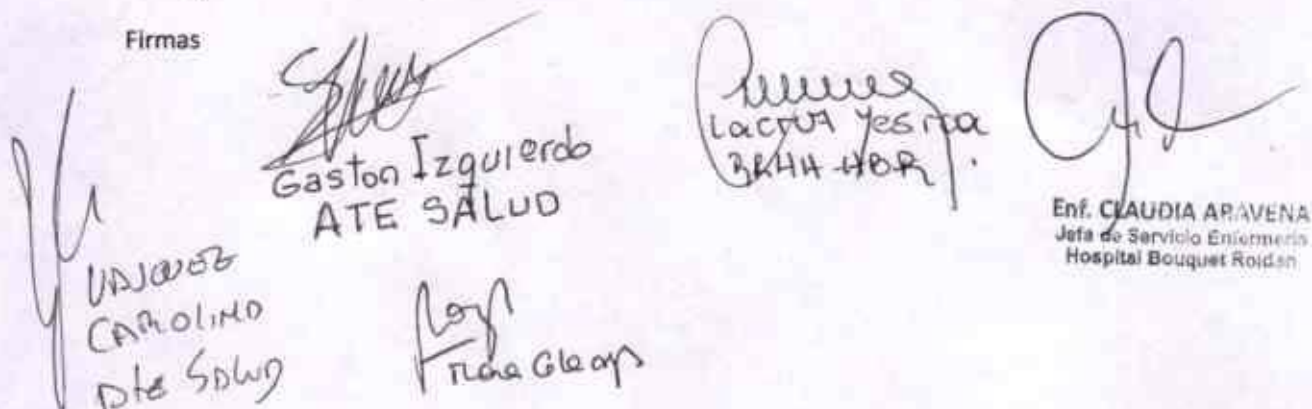 Firmas
Gaston Izquierdo
ATE SALUD
Yesica
HBR
Enf. CLAUDIA ARAVENA
Jefa de Servicio Enfermeria
Hospital Bouquet Roldan
VASQUEZ
CAROLINA
Ate SALUD